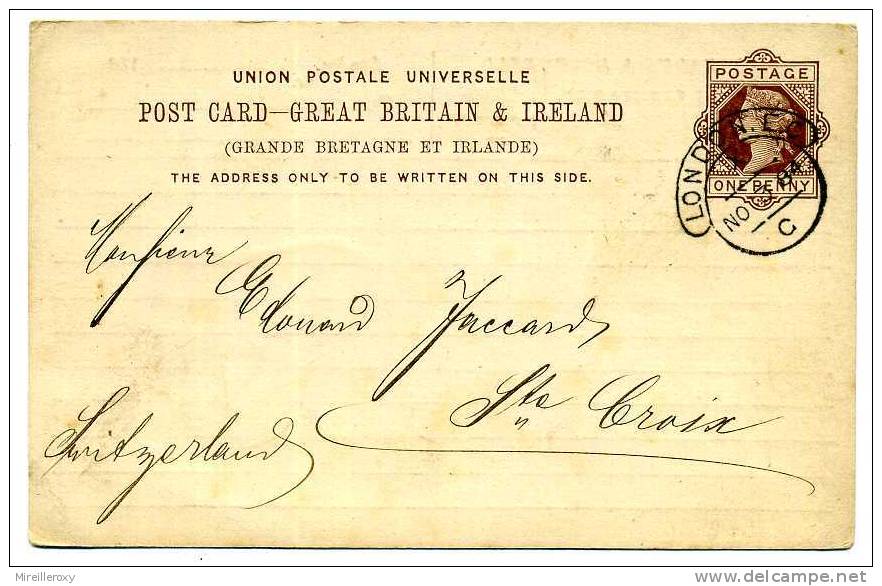 UNION POSTALE UNIVERSELLE
POST CARD—GREAT BRITAIN & IRELAND
(GRANDE BRETAGNE ET IRLANDE)
THE ADDRESS ONLY TO BE WRITTEN ON THIS SIDE.
POSTAGE
ONE PENNY
LONDON
NO 84
C
Monsieur
Edouard Jaccard
Ste Croix
Switzerland
Mireilleroxy
delcampe.net